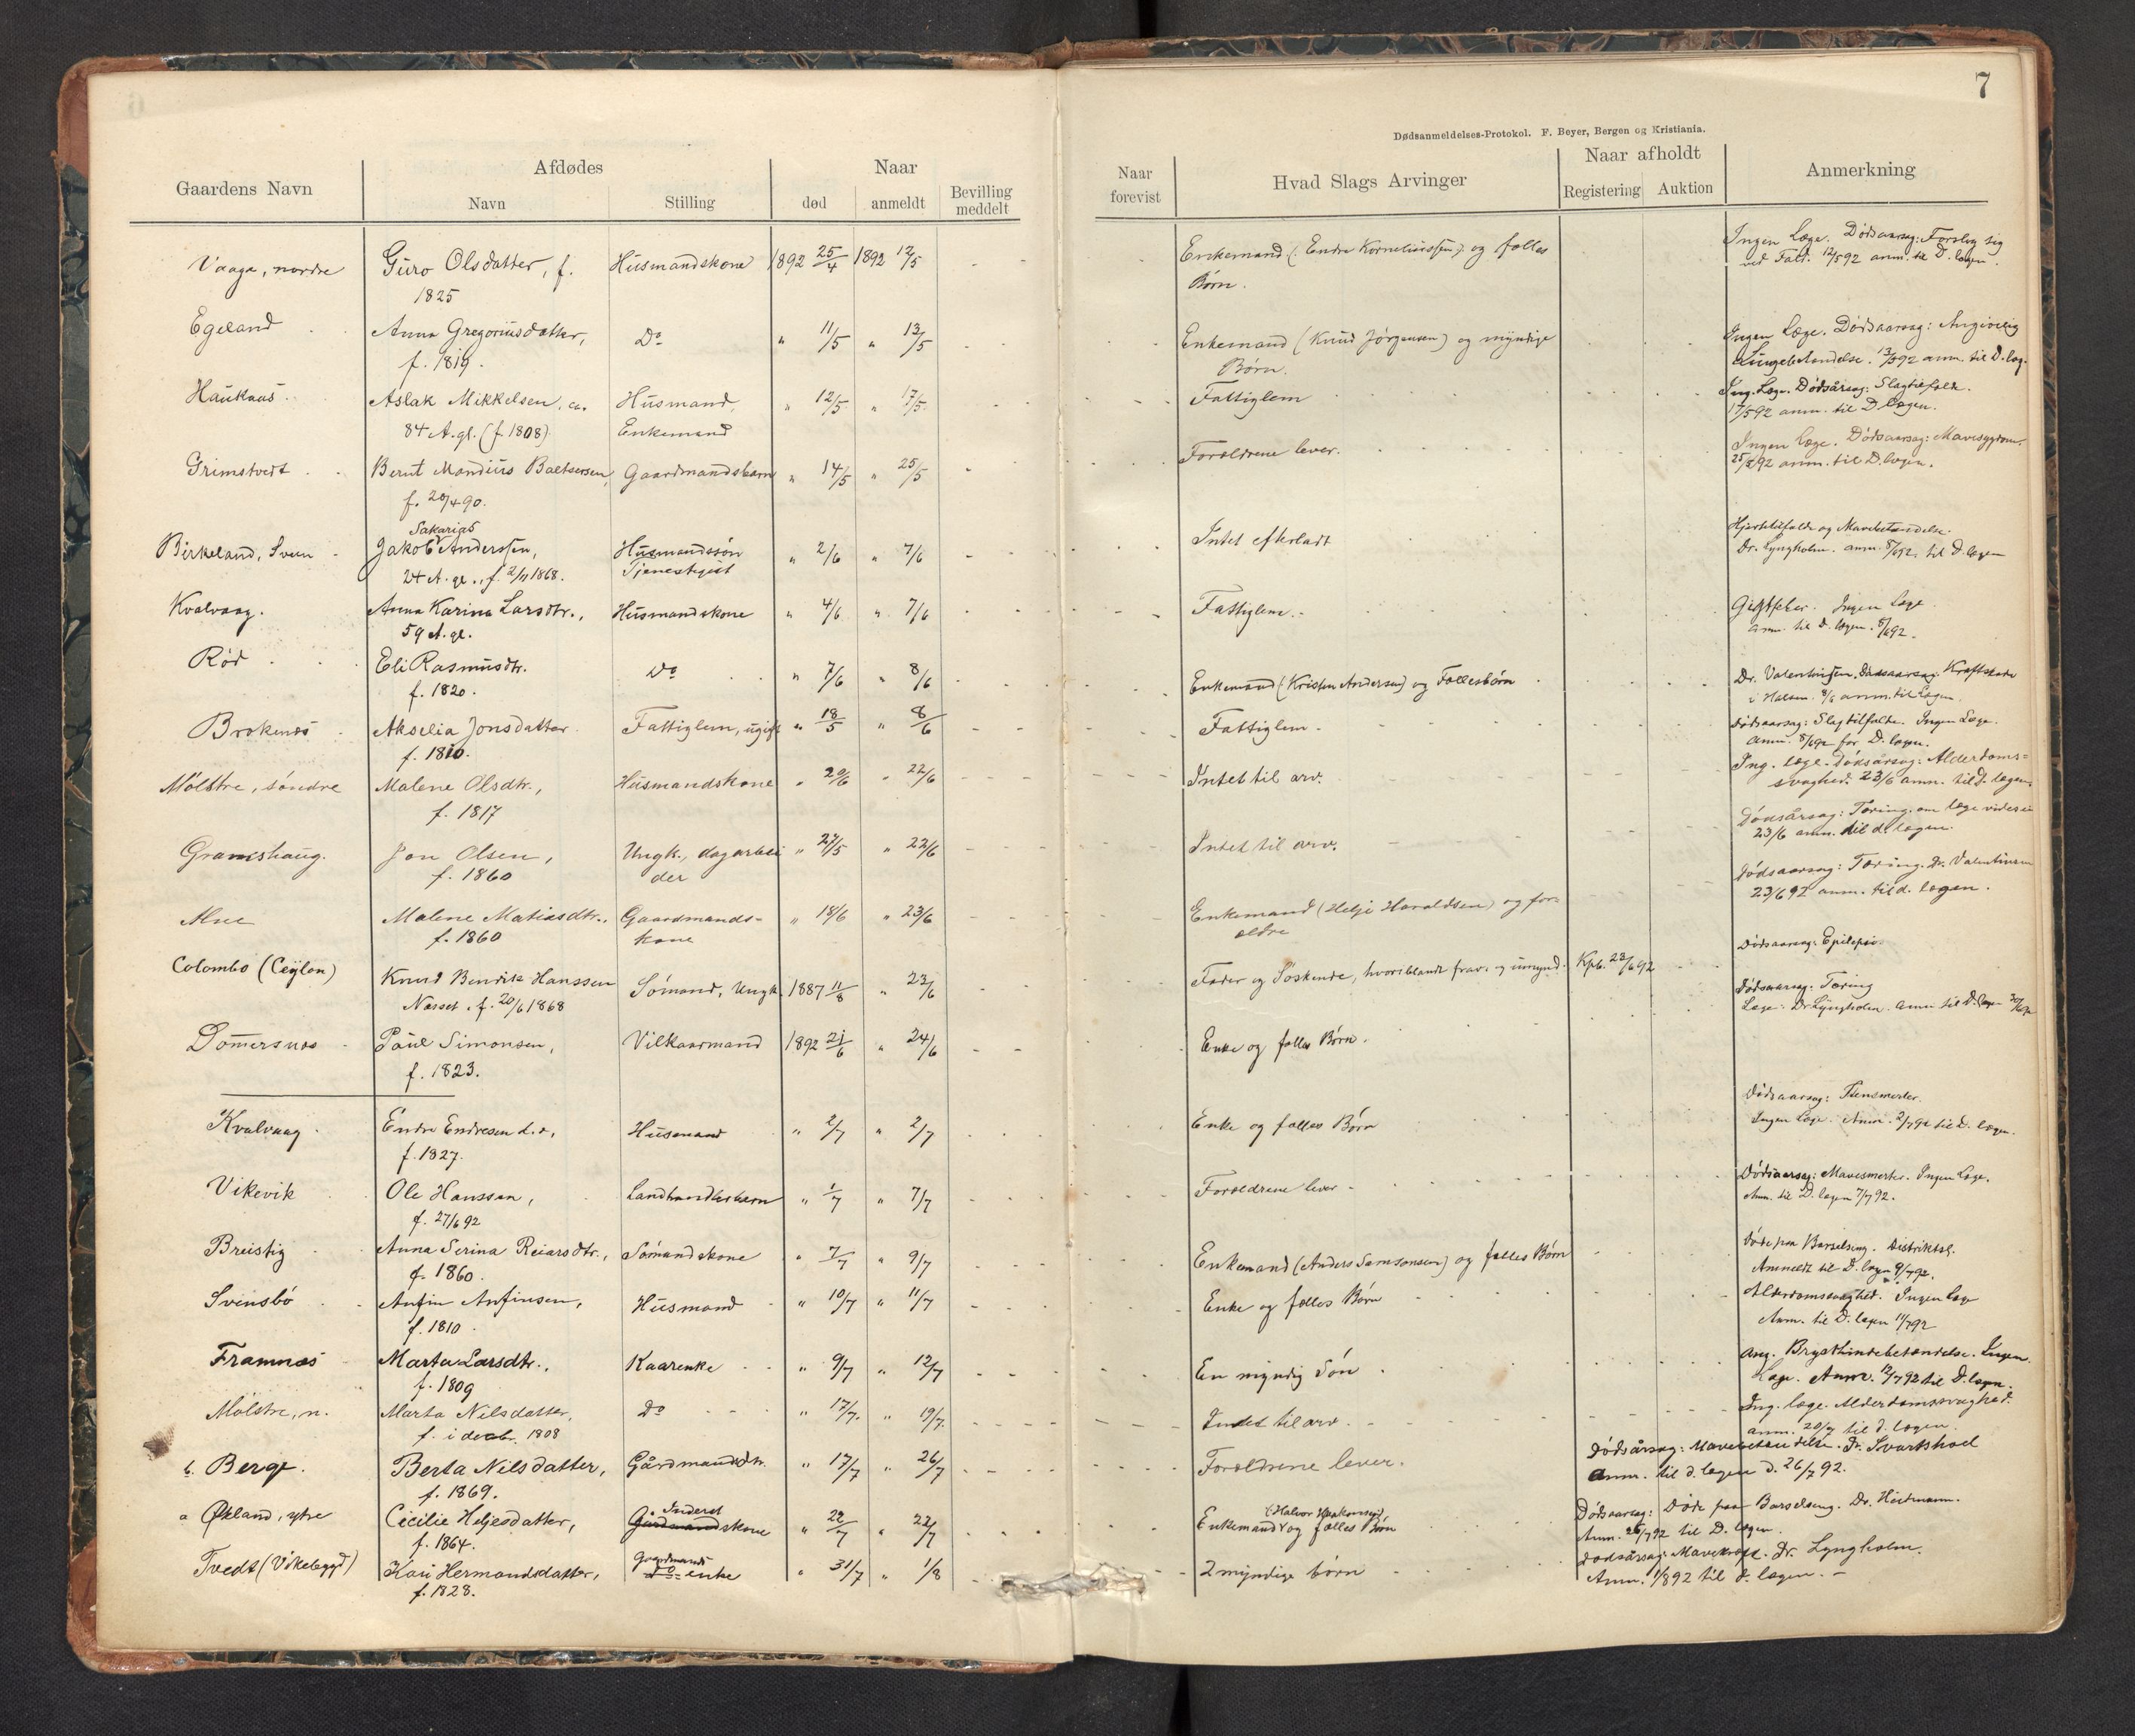 7
Dødsanmeldelses-Protokol. F. Beyer, Bergen og Kristiania.
Gaardens Navn Afdødes Naar Bevilling meddelt
Navn Stilling død anmeldt
Naar forevist Hvad Slags Arvinger Naar afholdt Anmerkning
Registering Auktion
Vaaga, nordre Guro Olsdatter, f. Husmandskone 1892 25/4 1892 12/5 Enkemand (: Endre Korneliussen :) og fælles Ingen Læge. Dødsaarsag: Forslog sig
1825 Børn. ved Fald. 12/5 92 anm. til D. lægen.
Egeland Anna Gregoriusdatter, Do " 11/5 " 13/5 Enkemand (Knud Jørgensen) og myndige Ingen Læge. Dødsaarsag: Angivelig
f. 1819. Børn. Lungebetændelse. 13/5 92 anm. til D. læg.
Haukaas Aslak Mikkelsen, ca. Husmand, " 12/5 " 17/5 Fattiglem Ing. Læge. Dødsårsag: Slagtilfælde.
84 A. gl. (f. 1808) Enkemand 17/5 92 anm. til D lægen.
Grimstvedt Bernt Mandius Baltsersen, Gaardmandsbarn " 14/5 " 25/5 Forældrene lever. Ingen læge. Dødsaarsag: Mavesygdom.
f. 20/4 90. 25/5 92 anm. til D. lægen.
Sakarias
Birkeland, Svein Jakob Anderssen, Husmandssøn " 2/6 " 7/6 Intet efterladt Hjertetilfælde og Mavebetændelse.
24 A. gl., f. 2/11 1868. Tjenestegut Dr. Lyngholm. anm. 8/6 92 til D. lægen
Kvalvaag. Anna Karina Larsdtr., Husmandskone " 4/6 " 7/6 Fattiglem. Gigtfeber. Ingen Læge
59 A. gl. anm. til D. lægen. 8/6 92.
Rød Eli Rasmusdtr. Do " 7/6 " 8/6 Enkemand (Kristen Andersen) og Fællesbørn Dr. Valentinsen. Dødsaarsag: Kræftskade
f. 1820. i Halsen. 8/6 anm. til Lægen.
Brokenes Akselia Jonsdatter Fattiglem, ugift " 18/5 " 8/6 Fattiglem. Dødsaarsag: Slagtilfælde. Ingen Læge.
f. 1810. Anm. 8/6 92 for D. lægen.
Mølstre, søndre Malene Olsdtr., Husmandskone " 20/6 " 22/6 Intet til arv. Ing. læge. Dødsårsag: Alderdoms-
f. 1817 svaghed. 23/6 anm. til d. lægen.
Graneshaug. Jon Olsen, Ungk., dagarbei " 27/5 " 22/6 Intet til arv. Dødsårsag: Tæring. om læge vides ei
f. 1860 der 23/6 anm. til d. lægen.
Alne Malene Matiasdtr., Gaardmands- " 18/6 " 23/6 Enkemand (Helje Haraldsen) og for- Dødsaarsag: Tæring. Dr. Valentinsen
f. 1860 kone ældre 23/6 92 anm. til d. lægen.
Colombo (Ceylon) Knud Bendik Hanssen Sømand, Ungk. 1887 11/8 " 23/6 Fader og Søskende, hvoriblandt frav. og umynd. Kpb. 23/6 92 Dødsaarsag: Epilepsi.
Næsset. f. 20/6 1868
Dommersnes Paul Simonsen, Vilkaarmand 1892 21/6 " 24/6 Enke og fælles Børn. Dødsaarsag: Tæring
f. 1823. Læge: Dr. Lyngholm. Anm til D. lægen
Kvalvaag Endre Endresen d. æ, Husmand " 2/7 " 2/7 Enke og fælles Børn Dødsaarsag: Stensmerter.
f. 1827. Ingen Læge. Anm. 2/7 92 til D. lægen.
Vikevik Ole Hanssen, Landhandlerbarn " 1/7 " 7/7 Forældrene lever Dødsaarsag: Mavesmerter. Ingen Læge.
f. 27/6 92 Anm. til D. lægen 7/7 92.
Breistig Anna Serina Reiarsdtr., Sømandskone " 7/7 " 9/7 Enkemand (Anders Samsonsen) og fælles Børn Døde paa Barselseng. Distriktsl.
f. 1860. Anmeldt til D. lægen 9/7 92.
Svensbø Anfin Anfinsen, Husmand " 10/7 " 11/7 Enke og fælles Børn Alderdomssvaghed. Ingen læge
f. 1810 Anm. til D. lægen 11/7 92
Framnæs Marta Larsdtr., Kaarenke " 9/7 " 12/7 En myndig Søn Ang. Brysthindebetændelse. Ingen
f. 1809 Læge. Anm. 12/7 92 til D. lægen.
Mølstre, n. Marta Nilsdatter, Do " 17/7. " 19/7. Intet til arv. Ing. læge. Alderdomssvaghed.
f. i decbr. 1808 anm. 20/7 til d. lægen
b. Berge. Berta Nilsdatter, Gårdmandsdtr. " 17/7 " 26/7 Forældrene lever. Dødsårsag: Mavebetændelse. Dr. Svartshod
f. 1869. Anm. til d. lægen d. 26/7 92.
Inderst (Halvor Haakonsen)
a Økland, ytre Cicilie Heljesdatter, Gårdmandskone " 22/7 " 22/7 Enkemand og fælles Børn Dødsaarsag: Døde paa Barselseng. Dr. Heitmann.
f. 1864. Anm. 26/7 92 til D. lægen.
Gaardmands
Tvedt (Vikebygd) Kari Hermandsdatter, Do enke " 31/7 " 1/8 2 myndige børn Dødsårsag: Mavekræft. Dr. Lyngholm.
f. 1828. Anm. 1/8 92 til d. lægen.